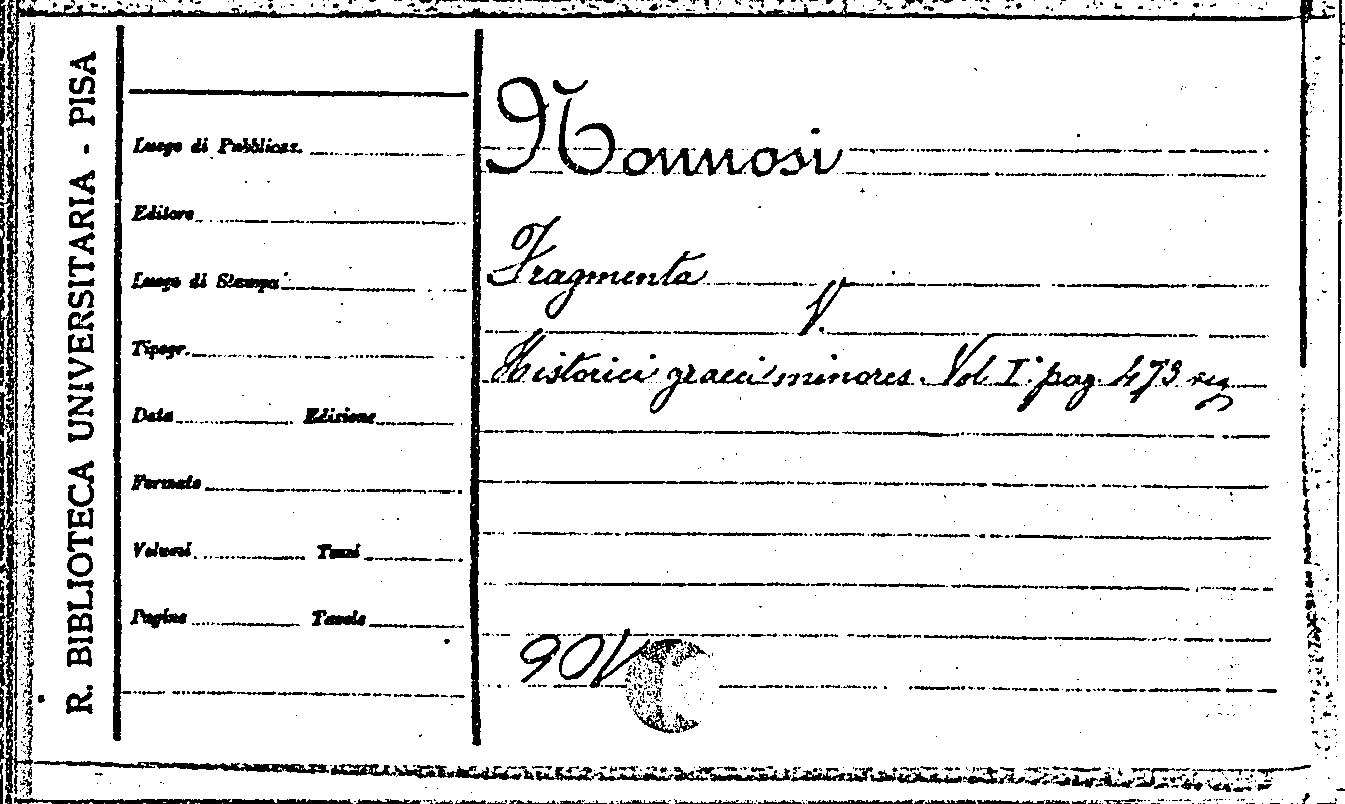 R. BIBLIOTECA UNIVERSITARIA - PISA
Luogo di Pubblicaz.
Editore
Luogo di Stampa
Tipogr.
Data Edizione
Formato
Volumi Tomi
Pagine Tavole
Nonnosi
Fragmenta
V.
Historici graeci minores. Vol. I. pag. 473 seq
90V